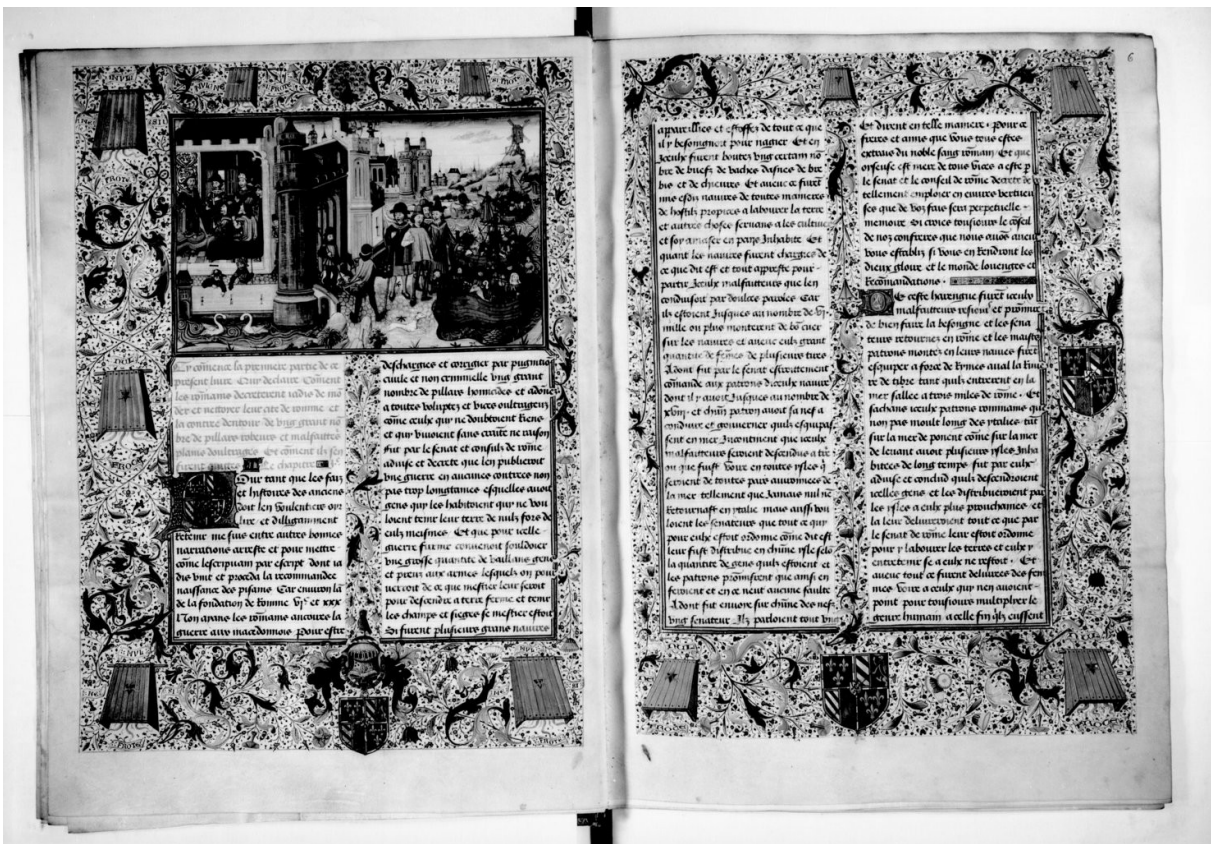 Cy cōmence la premiere partie de ce
present livre Qui declaire Cōment
les rōmains decreterent iadis de mō
der et nettoier leur cite de romme et
la contree dentour de vng grant nō
bre de pillars robeurs et malfaitre
plains doultraiges Et cōment ilz sen
furent Le chapitre
Our tant que les fais
et histoires des anciens
doit len voulentiers oyr
lire et dilligamment
retenir me suis entre autres bonnes
narrations arreste et pour mettre
cōme lescripuain par escript dont ia
dis vint et proceda la recommandee
naissance des pisains Car environ lā
de la fondation de Romme vjᶜ et xxx
Non ayans les rōmains ancores la
guerre aux macedonnois Pour estre
deschargies et corrigier par pugnition
ciuile et non criminelle vng grant
nombre de pillars homicides et adōne
a toutes voluptez et vices oultrageux
cōme ceulx qui ne doubtoient riens
et qui viuoient sans crāite ne raison
fut par le senat et consulz de rōme
aduise et decrete que len publieroit
vne guerre en aucunes contrees non
pas trop longtaines esquelles auoit
gens qui les habitoient qui ne vou
loient tenir leur terre de nulz fors de
eulz meismes Et que pour icelle
guerre furnie conuenoit souldoier
vne grosse quantite de vaillans gens
et preux aux armes lesquelz on pour
uerroit de ce que mestier leur seroit
pour descendre a terre ferme et tenir
les champs et sieges se mestier estoit
Si furent plusieurs grans nauires
6
appareillies et estoffez de tout ce que
il y besongnoit pour nagier Et en
iceulx furent boutez vng certain nō
bre de buefz de vaches dasnes de bre
bis et de chieures Et auec ce furēt
mis esdis nauires de toutes manieres
de hostilz propices a labourer la terre
et autres choses seruans a les cultiuer
et soy amaser en pays Inhabite Et
quant les nauires furent chargies de
ce que dit est et tout appreste pour
partir Iceulx malfaitteurs que len
conduisoit par doulces paroles Car
ilz estoient Jusques au nombre de vj.
mille ou plus monterent de bō cuer
sur les nauires et auec eulz grant
quantite de fēmes de plusieurs tires
Adont fut par le senat estroittement
cōmande aux patrons diceulx nauires
dont il y auoit Jusques au nombre de
xviij. et chūn patron auoit sa nef a
conduire et gouuerner quilz esquipas
sent en mer Incontinent que iceulx
malfaitteurs seroient descendus a ter
ou que fust voire en toutes ysles q̄
seroient de toutes pars auironnees de
la mer tellement que Jamais nul ne
retournast en ytalie mais aussi vou
loient les senateurs que tout ce qui
pour eulx estoit ordonne cōme dit est
leur fust distribue en chūne ysle selō
la quantite de gens quilz estoient et
les patrons promisrent que ainsi en
feroient et en ce neut aucune faulte
Adont fut enuoie sur chūne des nefz
vng senateur Ilz parloient tout vng
Et dirent en telle maniere . Pour ce
freres et amis que vous tous estes
extrais du noble sang rōmain Et que
oyseuse est mere de tous vices a este p
le senat et le conseil de rōme decrete de
tellement emploier en euures vertueu
ses que de voz fais sera perpetuelle
memoire Si croies tousiours le cōseil
de noz confreres que nous auōs auec
vous establis si vous en rendront les
dieux gloire et le monde louenges et
recōmandations .
De ceste harengue furēt iceulx
malfaitteurs resiouis et promirēt
de bien faire la besongne et les sena
teurs retournez en rōme et les maistres
patrons montez en leurs nauires firēt
esquiper a force de rymes aual la riuie
re de tibre tant quilz entrerent en la
mer sallee a trois miles de rōme . Et
sachans iceulx patrons rōmmains que
non pas moult loing des ytalies tāt
sur la mer de ponent cōme sur la mer
de leuant auoit plusieurs ysles Inha
bitees de long temps fut par eulx
aduise et conclud quilz descendroient
icelles gens et les distribueroient par
les ysles a eulx plus prouchaines et
la leur deliureroient tout ce que par
le senat de rōme leur estoit ordonne
pour y labourer les terres et eulx y
entretenir se a eulx ne restoit . Et
auec tout ce furent deliurees des fem
mes voire a ceulx qui nen auoient
point pour tousiours multiplier le
genre humain a celle fin qlz eussent